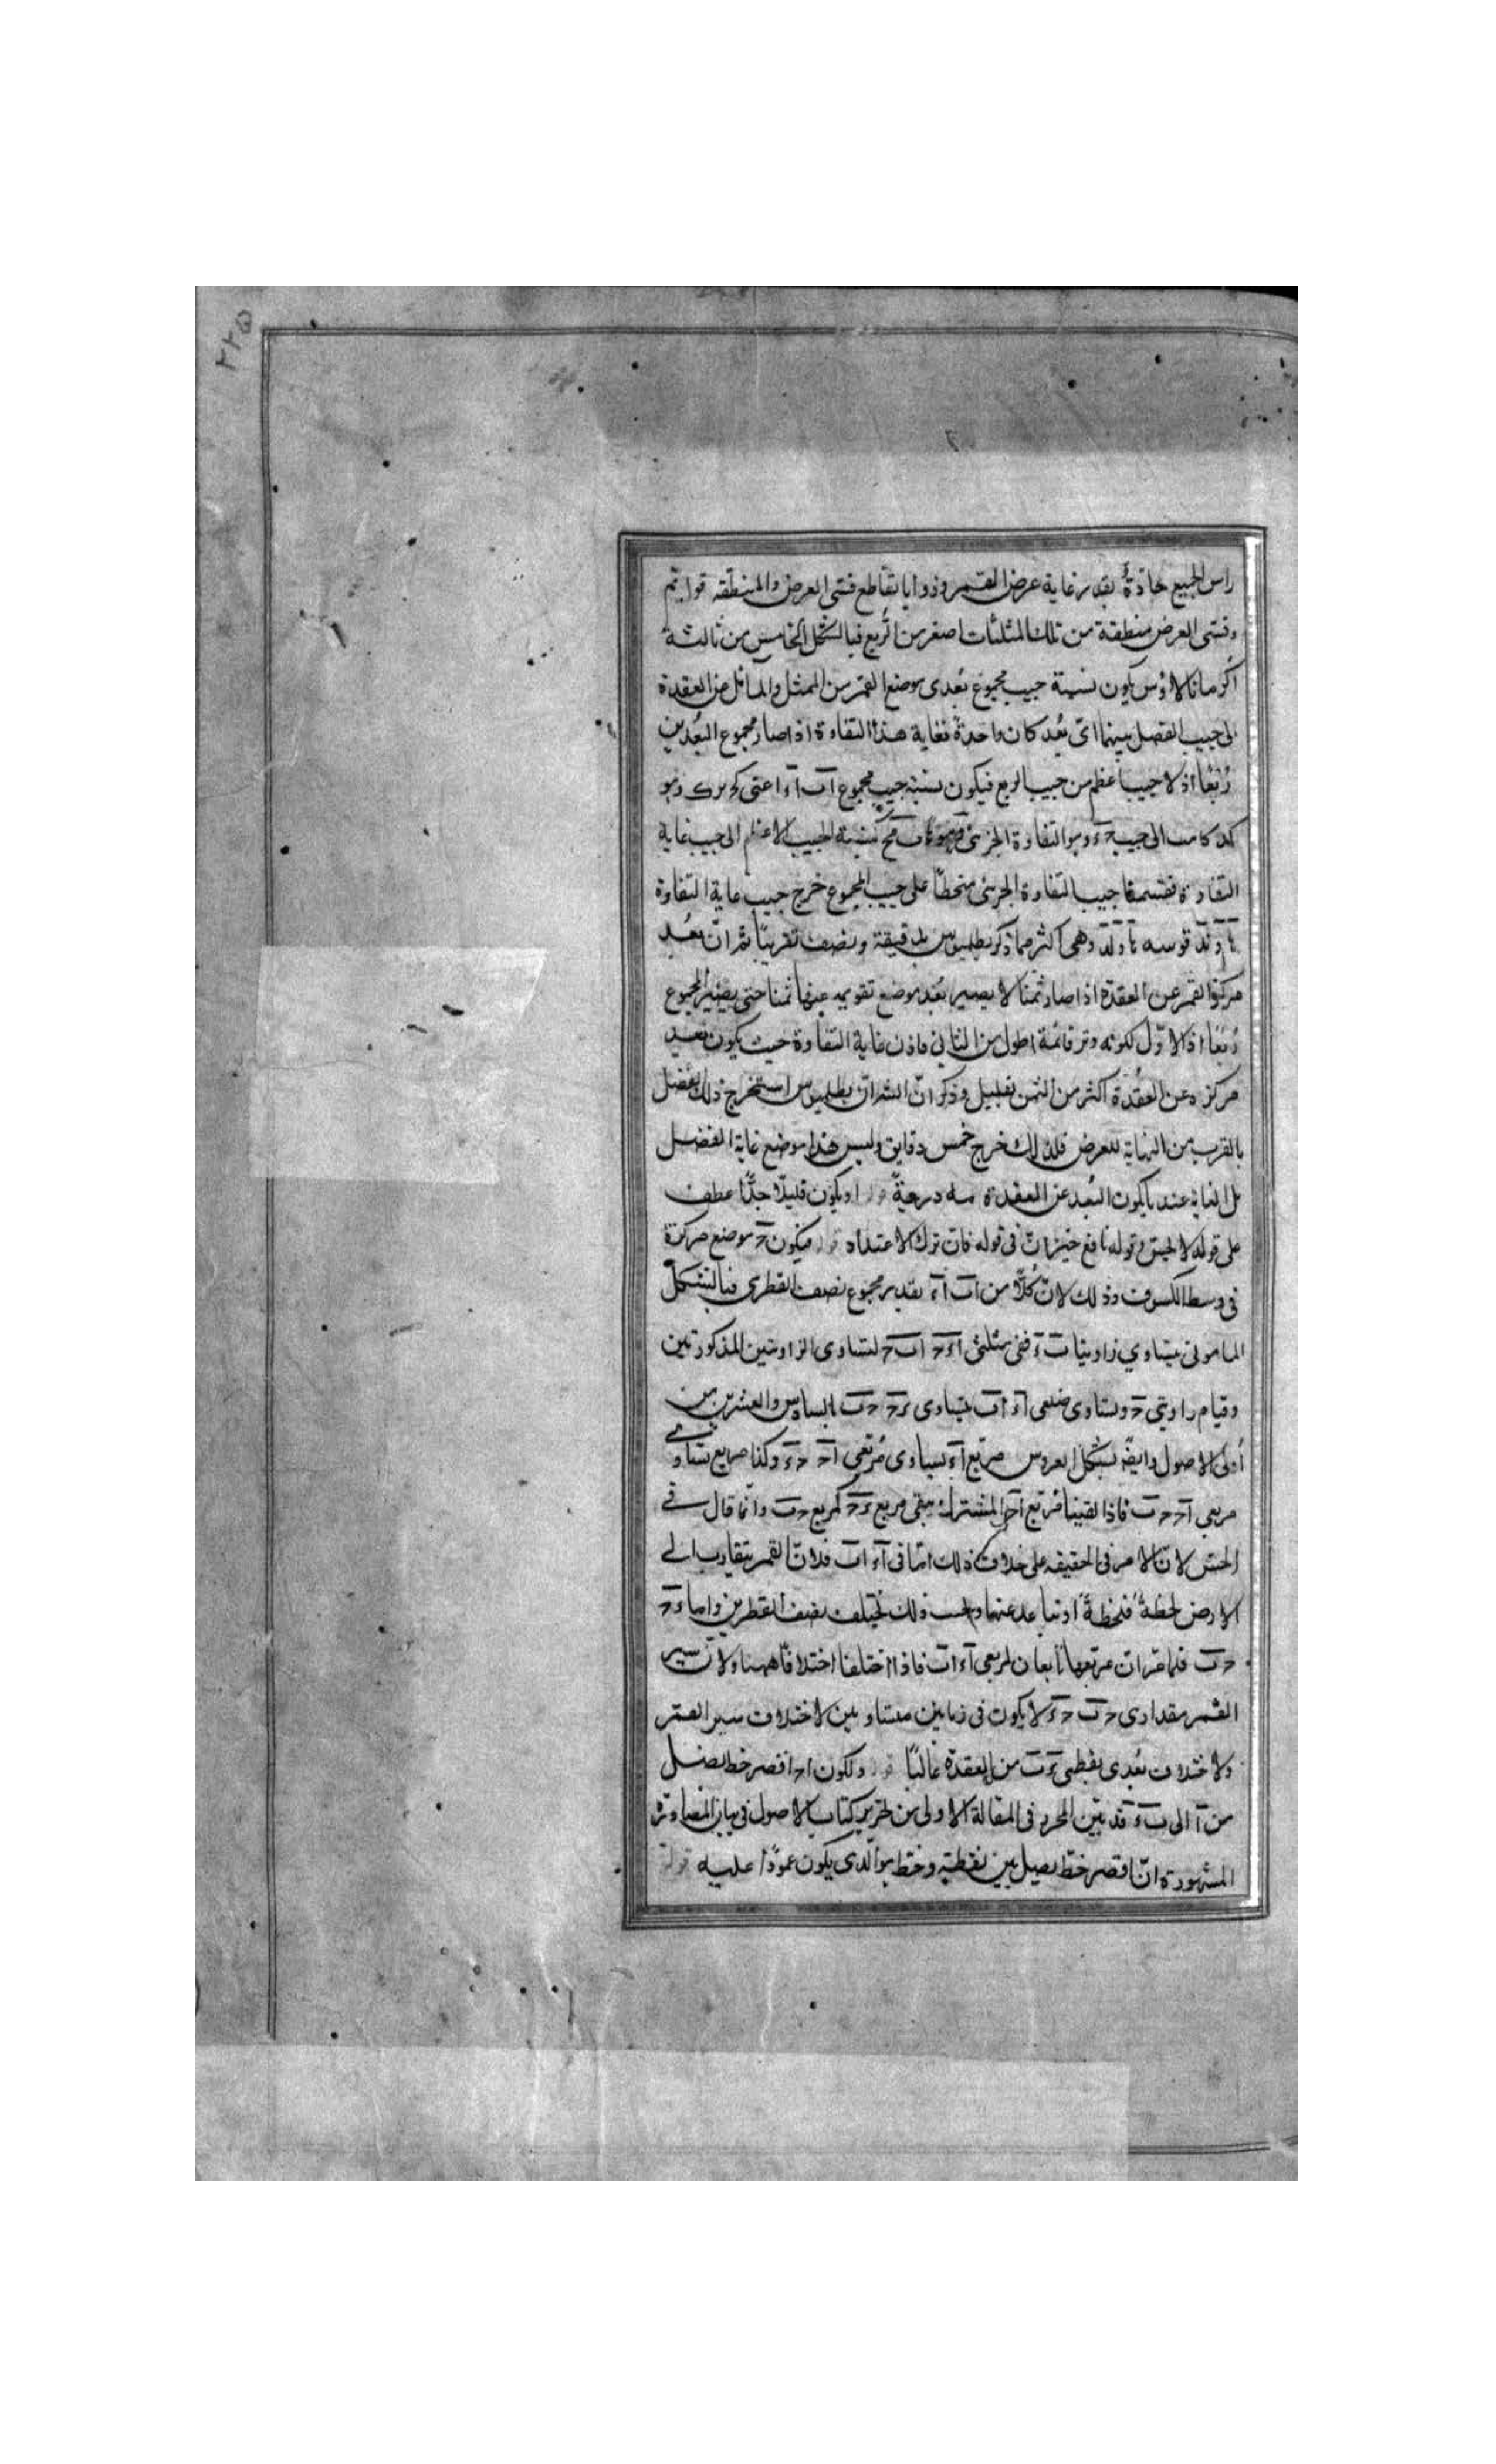 ٢٢٥
راس الجميع حادّةٌ بقدر غاية عرض القمر وزوايا تقاطع قسى العرض والمنطقه قوائم
وقسى العرض منطقة من تلك المثلثات اصغر من الربع فبالشكل الخامس من ثالثة
اكر مانالاوس يكون نسبة جيب مجموع بُعدى موضع القمر من الممثل والمائل عن العقدة
الى جيب الفضل بينهما اىّ بُعد كان واحدةً فغاية هذا التفاوة اذا صار مجموع البُعدين
رُبعًا اذ لا جيب اعظم من جيب الربع فيكون نسبة جيب مجموع اب اء اعنى وهو
الى جيب وهو التفاوة الجزئى كنسبة الجيب الاعظم الى جيب غاية
التفاوة فقسمنا جيب التفاوة الجزئى منحطًا على جيب المجموع خرج جيب غاية التفاوة
قوسه وهى اكثر مما ذكر بطلميوس بدقيقة ونصف تقريبًا ثم انّ بُعد
مركز القمر عن العقدة اذا صار ثمنا لا يصير بُعد موضع تقويمه عنها ثمنا حتى يصير المجموع
رُبعًا اذ الاوّل لكونه وتر قائمة اطول من الثانى فاذن غاية التفاوة حيث يكون بُعد
مركزه عن العُقدة اكثر من الثمن بقليل وذكر انّ بطلميوس استخرج ذلك الفضل
بالقرب من النهاية للعرض فلذلك خرج خمس دقايق وليس هذا موضع غاية الفضل
بل الغاية عند ما يكون البُعد عن العقدة مه درجةً او يكون قليلًا جدًّا عطف
على قوله لا يحس وقوله نافع خبر انّ فى قوله فان ترك الاعتداد فيكون ح موضع مركزة
فى وسط الكسوف وذلك لانّ كُلًّا من اب اء بقدر مجموع نصف القطرى فبالشكل
المامونى يتساوي زاويتا ب ء ففى مثلثى اءح ابح لتساوى الزاويتين المذكورتين
وقيام زاويتي ح وتساوى ضلعى اء اب يتساوى ءح حب بالسادس والعشرين من
اُولى الاصول وايضًا بشكل العروس مربع اء يساوى مُربّعي اح حء وكذا مربع يساوى
مربعى اح حب فاذا القينا مُربّع اح المشترك يبقى مربع ءح كمربع حب وانّما قال فى
الحسّ لانّ الامر فى الحقيقه على خلاف ذلك امّا فى اء اب فلانّ القمر يتقارب الى
الارض لحظةً فلحظةً او يتباعد عنها وبحسب ذلك يختلف نصف القطرين واما ءح
حب فلما مرّ ان مربعيهما تابعان لمربعى اء اب فاذا اختلفا اختلافا ههنا ولانّ سير
القمر مقدارى حب حء لا يكون فى زمانين متساويين لاختلاف سير القمر
ولاختلاف بُعدى نقطتى ء ب من العقدة غالبًا ولكون اح اقصر خط يصل
من ا الى بء قد بيّن المحرر فى المقالة الاولى من تحرير كتاب الاصول فى بيان المصادرة
المشهورة انّ اقصر خطّ يصل بين نقطة وخط هو الذى يكون عمودًا عليه قوله